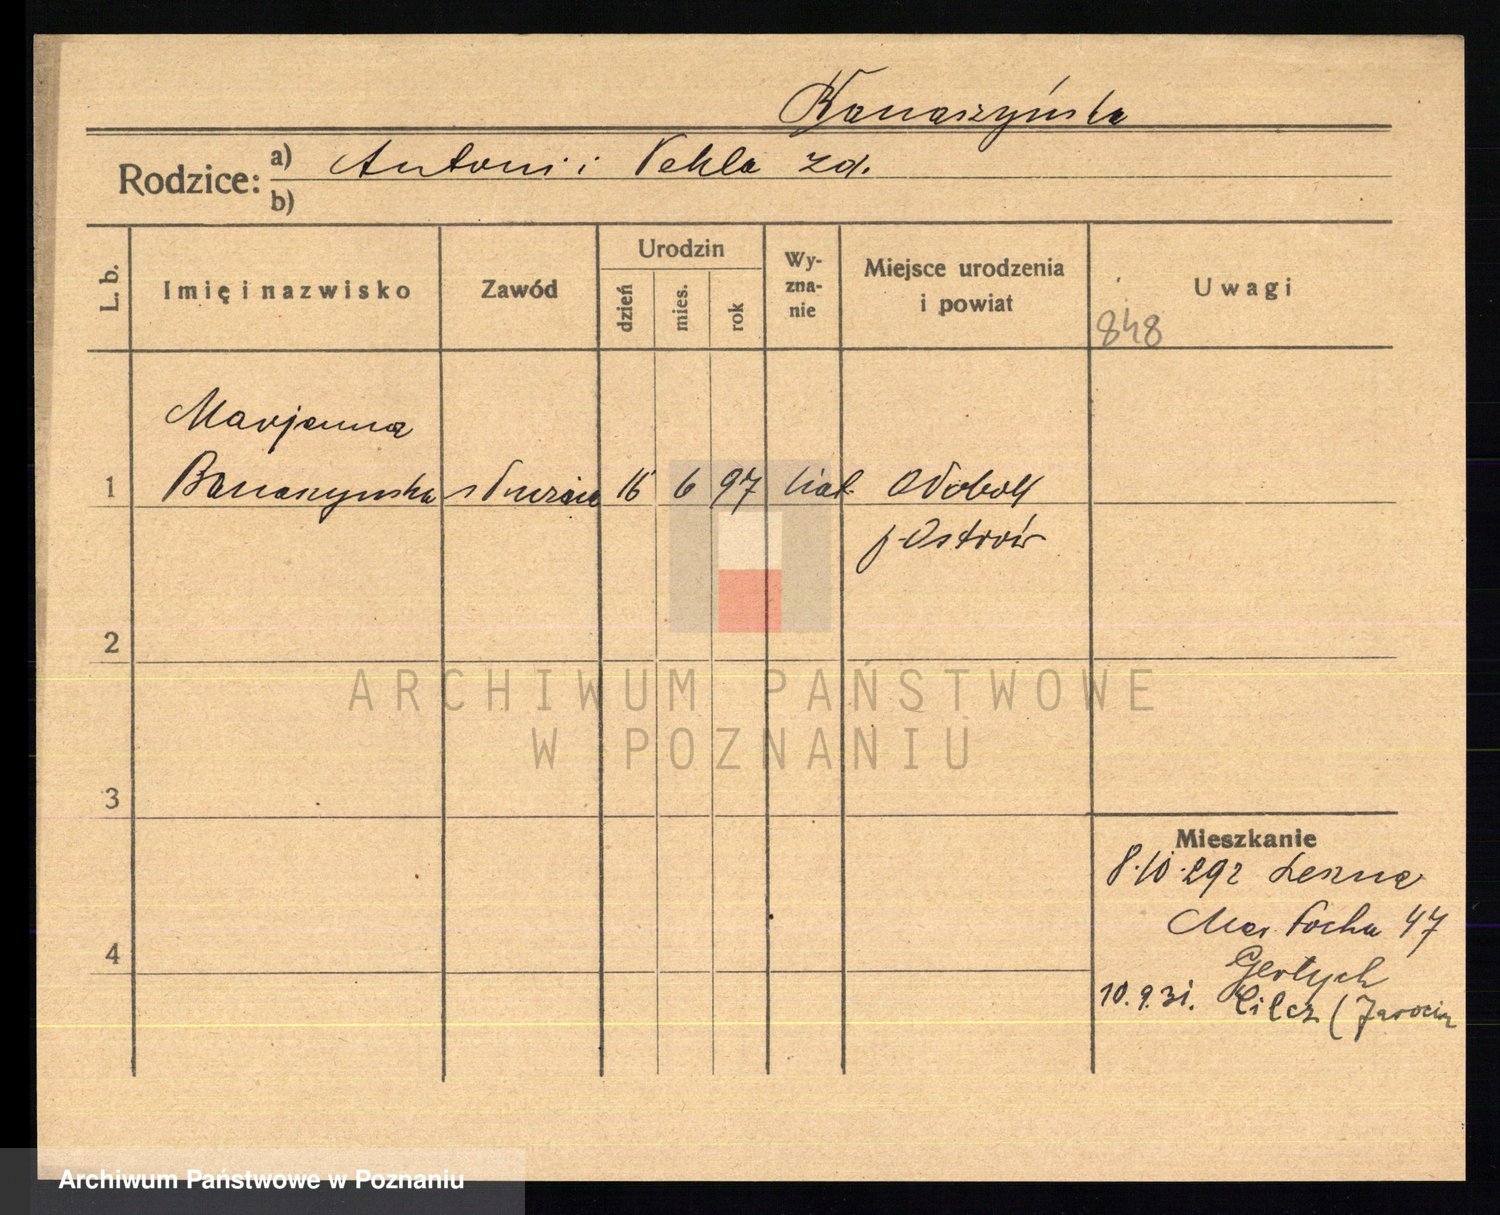 Banaszyńska
Rodzice: a) Antoni i Tekla zd.
b)
L. b.
Imię i nazwisko
Zawód
Urodzin
dzień
mies.
rok
Wy-
zna-
nie
Miejsce urodzenia
i powiat
Uwagi
848
Marjanna
1 Banaszyńska służąca 16 6 97 kat.
p. Ostrów
2
ARCHIWUM PAŃSTWOWE
W POZNANIU
3
Mieszkanie
8.10.292
Mar. Focha 47
4
Gertych
10.9.31. (Jarocin
Archiwum Państwowe w Poznaniu